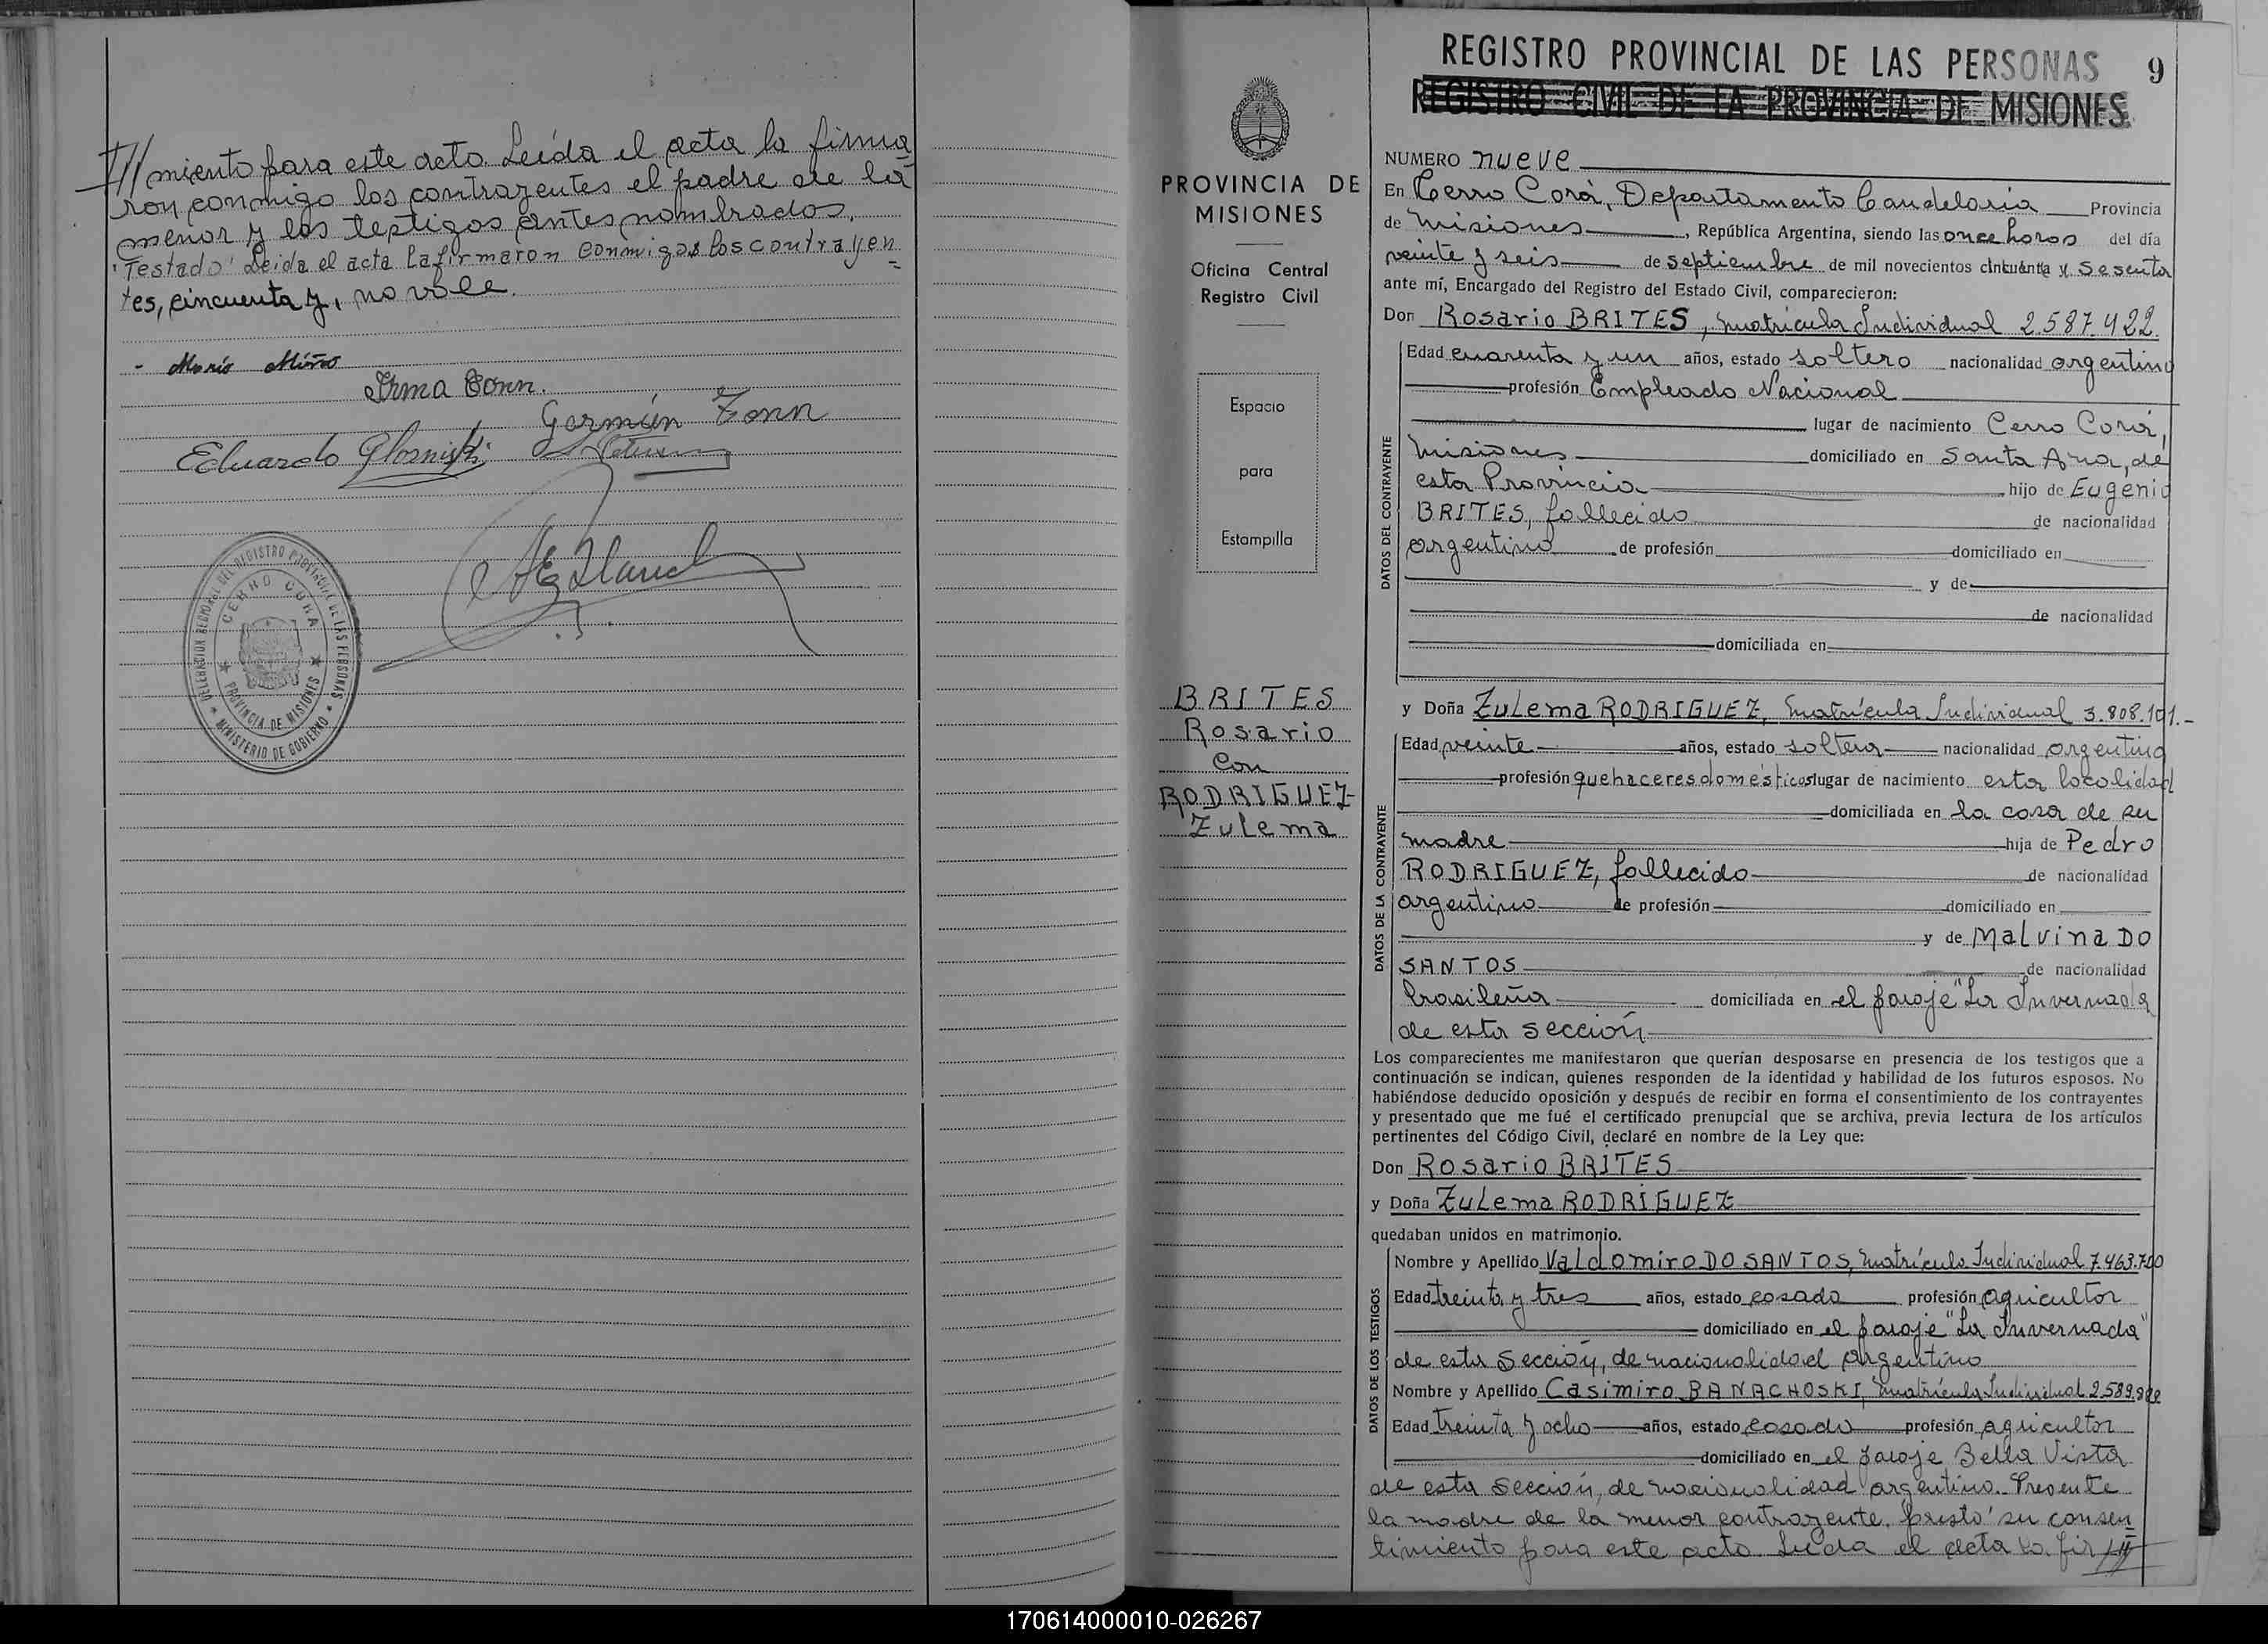 /// miento para este acto. Leída el acta la firma
ron conmigo los contrayentes el padre de la
menor y los testigos antes nombrados.
"Testado" Leída el acta la firmaron conmigo los contrayen
tes, cincuenta y, no vale.
Irma Tonn.
Germán Tonn
Eduardo
DELEGACION REGIONAL DEL REGISTRO PROVINCIAL DE LAS PERSONAS
CERRO CORA
PROVINCIA DE MISIONES
MINISTERIO DE GOBIERNO
PROVINCIA DE
MISIONES
Oficina Central
Registro Civil
Espacio
para
Estampilla
BRITES
Rosario
Con
RODRIGUEZ
Zulema
REGISTRO PROVINCIAL DE LAS PERSONAS 9
REGISTRO CIVIL DE LA PROVINCIA DE MISIONES
NUMERO nueve
En Cerro Corá, Departamento Candelaria Provincia
de Misiones, República Argentina, siendo las once horas del día
veinte y seis de septiembre de mil novecientos cincuenta y sesenta
ante mí, Encargado del Registro del Estado Civil, comparecieron:
Don Rosario BRITES, Matrícula Individual 2.587.422.
DATOS DEL CONTRAYENTE
Edad cuarenta y un años, estado soltero nacionalidad argentino
profesión Empleado Nacional
lugar de nacimiento Cerro Corá,
Misiones domiciliado en Santa Ana, de
esta Provincia hijo de Eugenio
BRITES, fallecido de nacionalidad
argentino de profesión domiciliado en
y de
de nacionalidad
domiciliada en
y Doña Zulema RODRIGUEZ, Matrícula Individual 3.808.101.-
DATOS DE LA CONTRAYENTE
Edad veinte años, estado soltera nacionalidad argentina
profesión quehaceres domésticos lugar de nacimiento esta localidad
domiciliada en la casa de su
madre hija de Pedro
RODRIGUEZ, fallecido de nacionalidad
argentino de profesión domiciliado en
y de Malvina DO
SANTOS de nacionalidad
brasileña domiciliada en el paraje "La Invernada
de esta sección
Los comparecientes me manifestaron que querían desposarse en presencia de los testigos que a
continuación se indican, quienes responden de la identidad y habilidad de los futuros esposos. No
habiéndose deducido oposición y después de recibir en forma el consentimiento de los contrayentes
y presentado que me fué el certificado prenupcial que se archiva, previa lectura de los artículos
pertinentes del Código Civil, declaré en nombre de la Ley que:
Don Rosario BRITES
y Doña Zulema RODRIGUEZ
quedaban unidos en matrimonio.
DATOS DE LOS TESTIGOS
Nombre y Apellido Valdomiro DO SANTOS, Matrícula Individual 7.463.700
Edad treinta y tres años, estado casado profesión agricultor
domiciliado en el paraje "La Invernada"
de esta sección, de nacionalidad argentino
Nombre y Apellido Casimiro BANACHOSKI, Matrícula Individual
Edad treinta y ocho años, estado casado profesión agricultor
domiciliado en el paraje Bella Vista
de esta sección, de nacionalidad argentino. Presente
la madre de la menor contrayente, prestó su consen
timiento para este acto. Leída el acta la fir ///
170614000010-026267